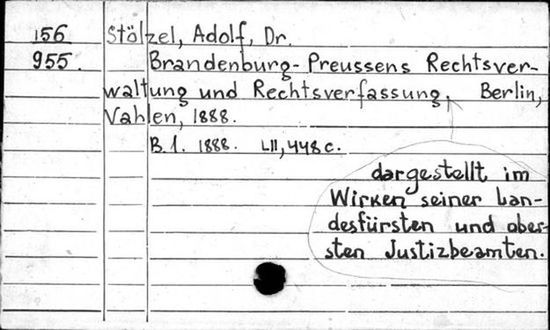 156 Stölzel, Adolf, Dr.
955. Brandenburg-Preussens Rechtsver-
waltung und Rechtsverfassung, Berlin,
Vahlen, 1888.
B.1. 1888. LII,448c.
dargestellt im
Wirken seiner Lan-
desfürsten und ober-
sten Justizbeamten.